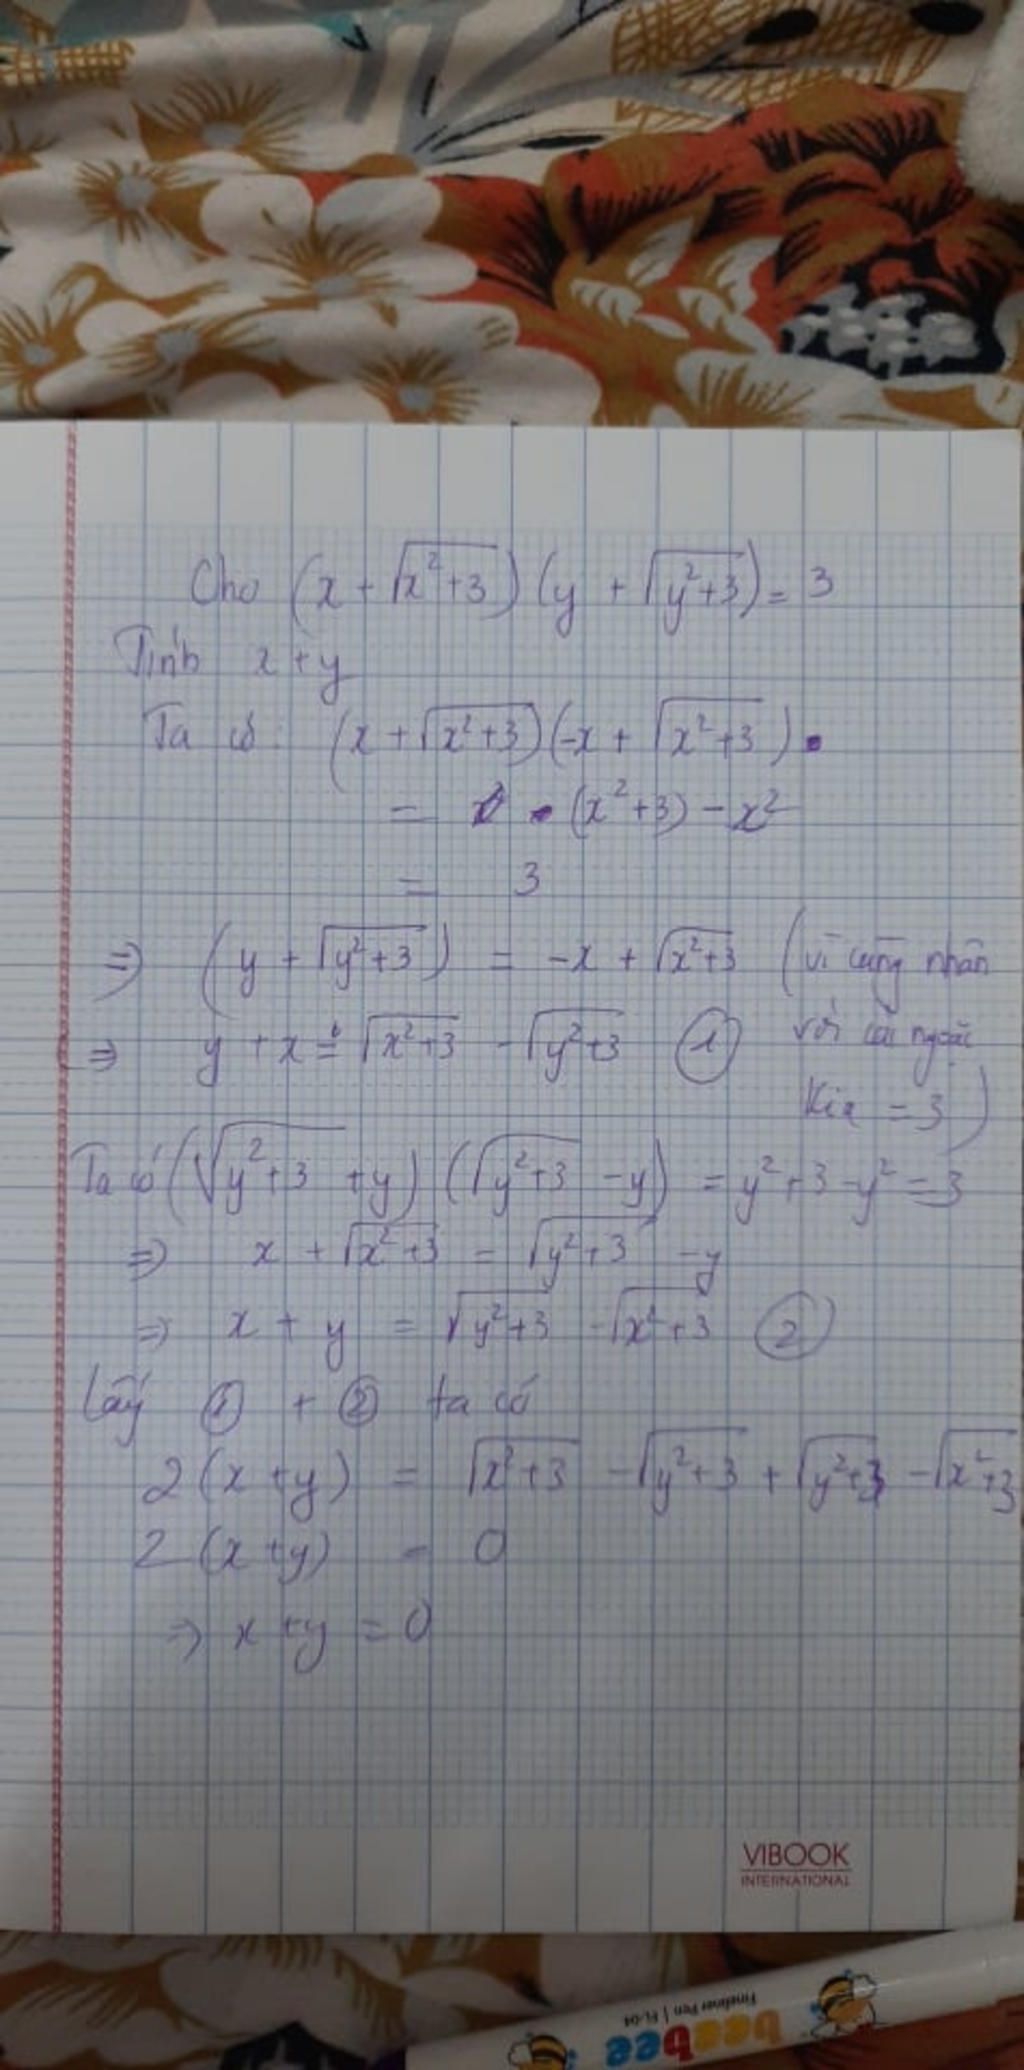 Cho (x + √(x²+3)) (y + √(y²+3)) = 3
Tính x + y
Ta có: (x + √(x²+3)) (-x + √(x²+3)) .
= (x²+3) - x²
= 3
=> (y + √(y²+3)) = -x + √(x²+3) (vì cùng nhân
=> y + x = √(x²+3) - √(y²+3) ① với cái ngoặc
kia = 3)
Ta có (√(y²+3) + y) (√(y²+3) - y) = y²+3-y² = 3
=> x + √(x²+3) = √(y²+3) - y
=> x + y = √(y²+3) - √(x²+3) ②
Lấy ① + ② ta có
2(x+y) = √(x²+3) - √(y²+3) + √(y²+3) - √(x²+3)
2(x+y) = 0
=> x+y = 0
VIBOOK
INTERNATIONAL
Fineliner Pen | FL-04
beebee